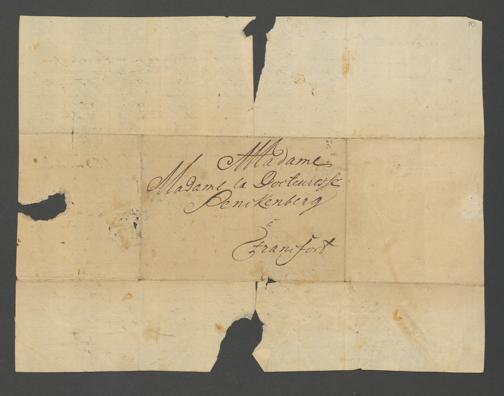 Madame
Madame la Docteuresse
Senckenberg
à
Francfort